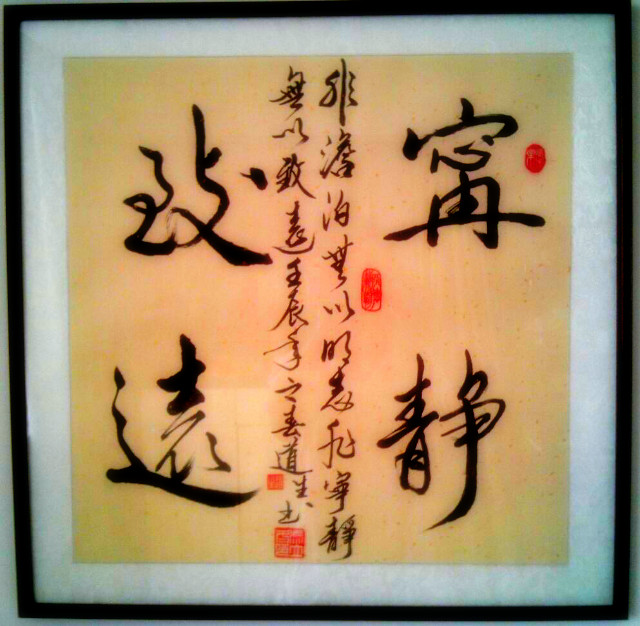 寧靜
致遠
非澹泊無以明志非寧靜
無以致遠壬辰年之春道生書